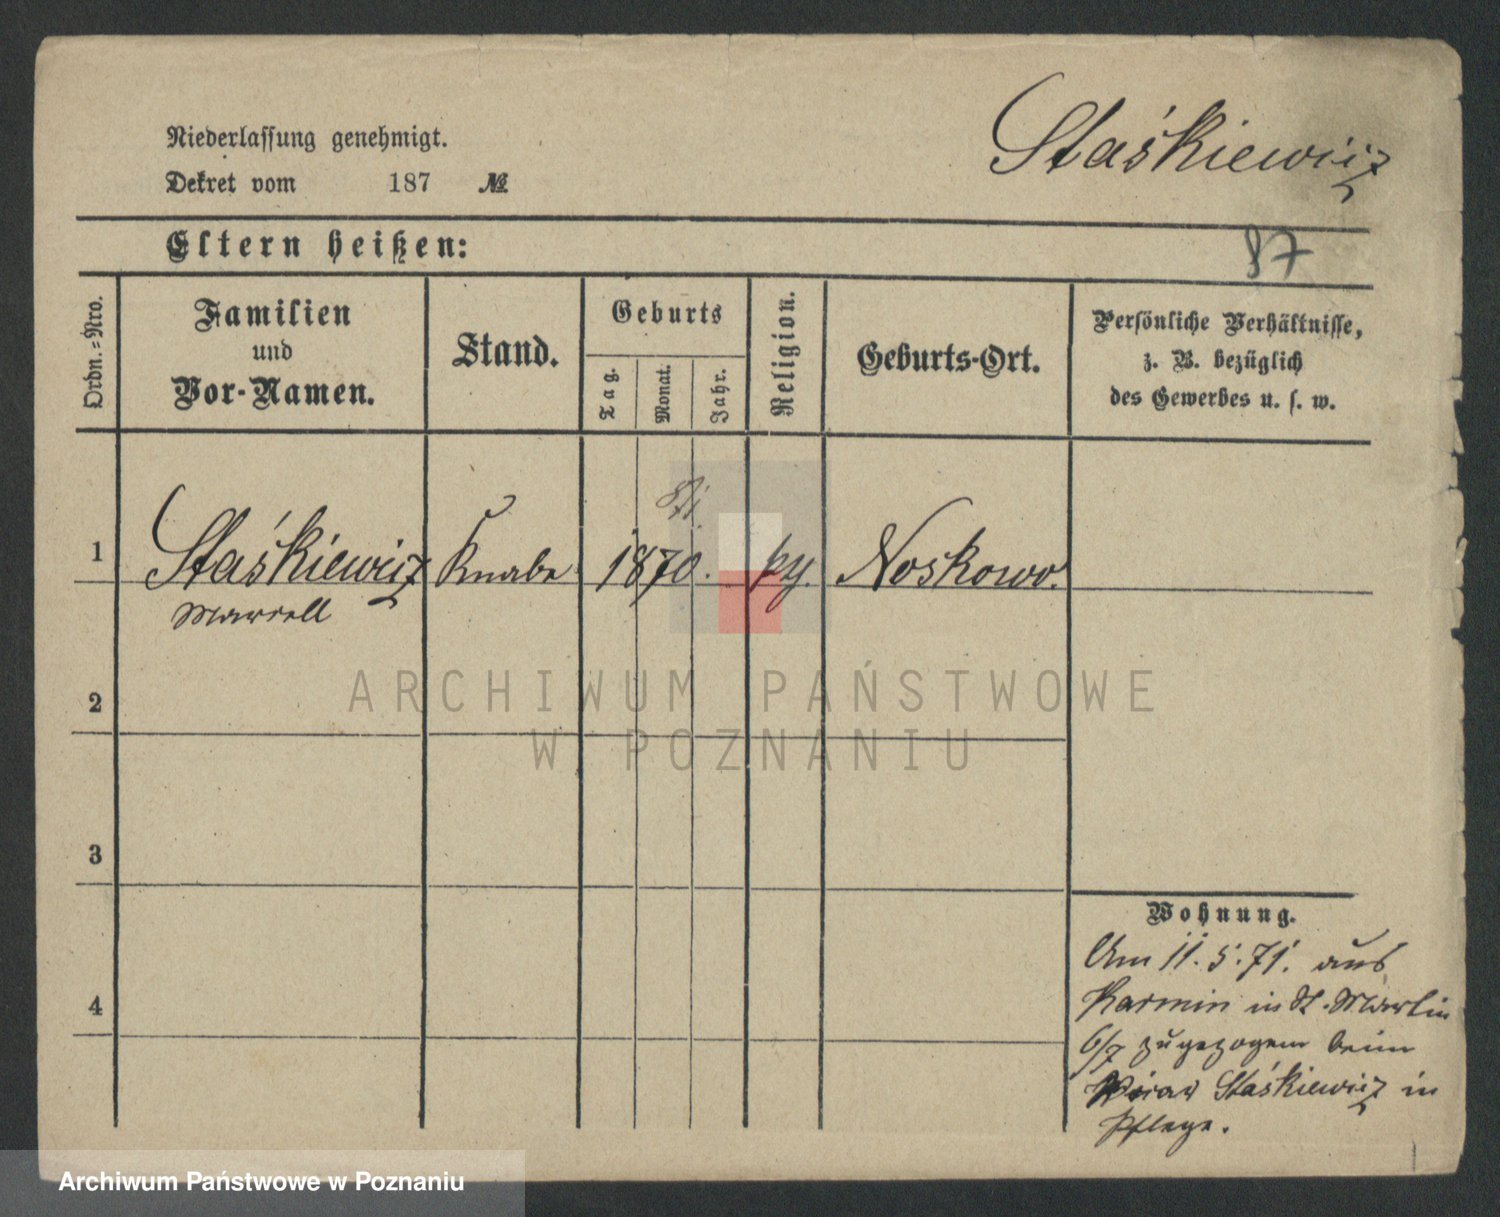 Staśkiewicz
Niederlassung genehmigt.
Dekret vom 187 №
Eltern heißen:
87
Ordn.=Nro.
Familien
und
Vor-Namen.
Stand.
Geburts
Tag.
Monat.
Jahr.
Religion.
Geburts-Ort.
Persönliche Verhältnisse,
z. B. bezüglich
des Gewerbes u. s. w.
1 Staśkiewicz Knabe 1870. Noskowo.
Marcell
2
3
4
Wohnung.
Am 11.5.71. aus
Karmin in St. Martin
6/7 zugezogen beim
Staśkiewicz in
Pflege.
ARCHIWUM PAŃSTWOWE
W POZNANIU
Archiwum Państwowe w Poznaniu